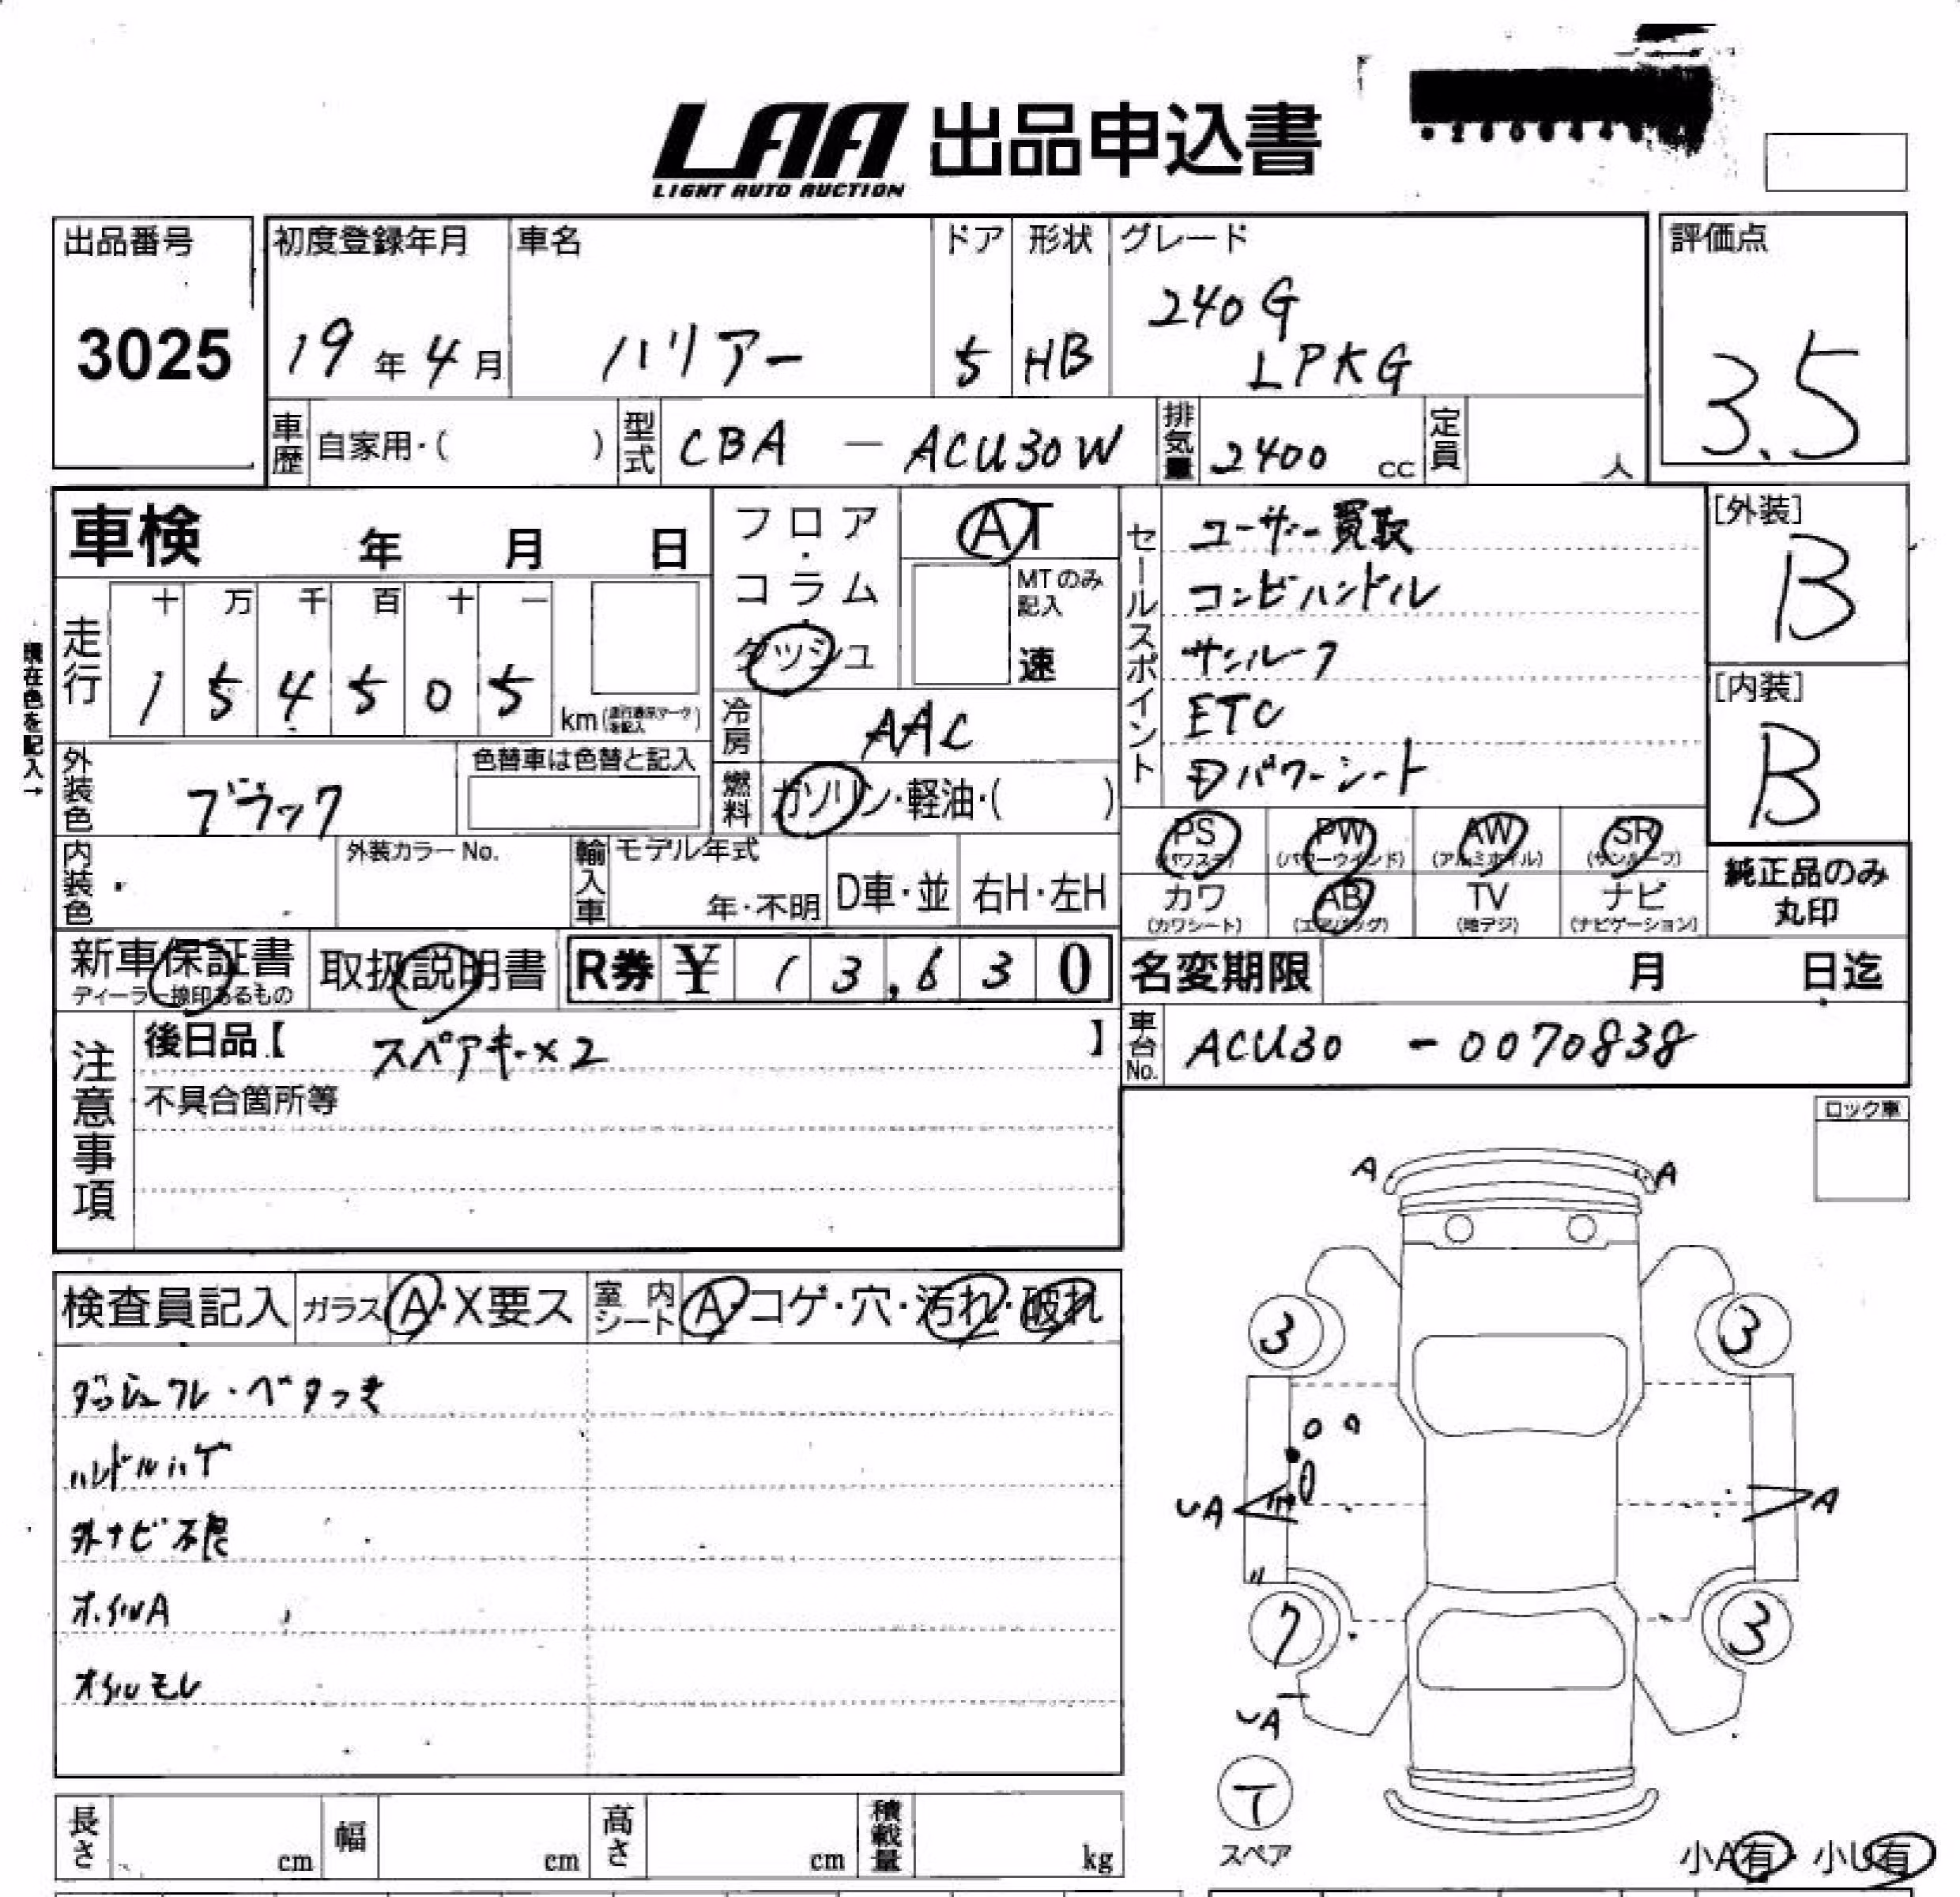 LAA 出品申込書
LIGHT AUTO AUCTION
出品番号
3025
初度登録年月
19年4月
車名
ハリアー
ドア
5
形状
HB
グレード
240G
LPKG
評価点
3.5
車歴 自家用・( )
型式 CBA - ACU30W
排気量 2400 cc
定員 人
車検 年 月 日
フロア・コラム・ダッシュ
AT
MTのみ記入
速
走行
十 万 千 百 十 一
1 5 4 5 0 5
km
現在色を記入→
冷房 AAC
燃料 ガソリン・軽油・( )
外装色 ブラック
色替車は色替と記入
内装色
外装カラーNo.
輸入車
モデル年式
年・不明
D車・並
右H・左H
セールスポイント
ユーザー買取
コンビハンドル
サンルーフ
ETC
Dパワーシート
[外装]
B
[内装]
B
PS PW AW SR
(パワステ) (パワーウインド) (アルミホイル) (サンルーフ)
カワ AB TV ナビ
(カワシート) (エアバッグ) (地デジ) (ナビゲーション)
純正品のみ
丸印
新車保証書
ディーラー捺印あるもの
取扱説明書
R券 ¥ 13,630
名変期限 月 日迄
車台No. ACU30 - 0070838
注意事項
後日品【 スペアキー×2 】
不具合箇所等
ロック車
検査員記入
ガラス A・X要ス
室内シート A・コゲ・穴・汚れ・破れ
ダッシュワレ・ベタつき
ハンドルハゲ
外ナビ不良
ホイルA
オイルモレ
A A
3 3
UA A
7 3
UA
T
スペア
小A有・小U有
長さ cm
幅 cm
高さ cm
積載量 kg